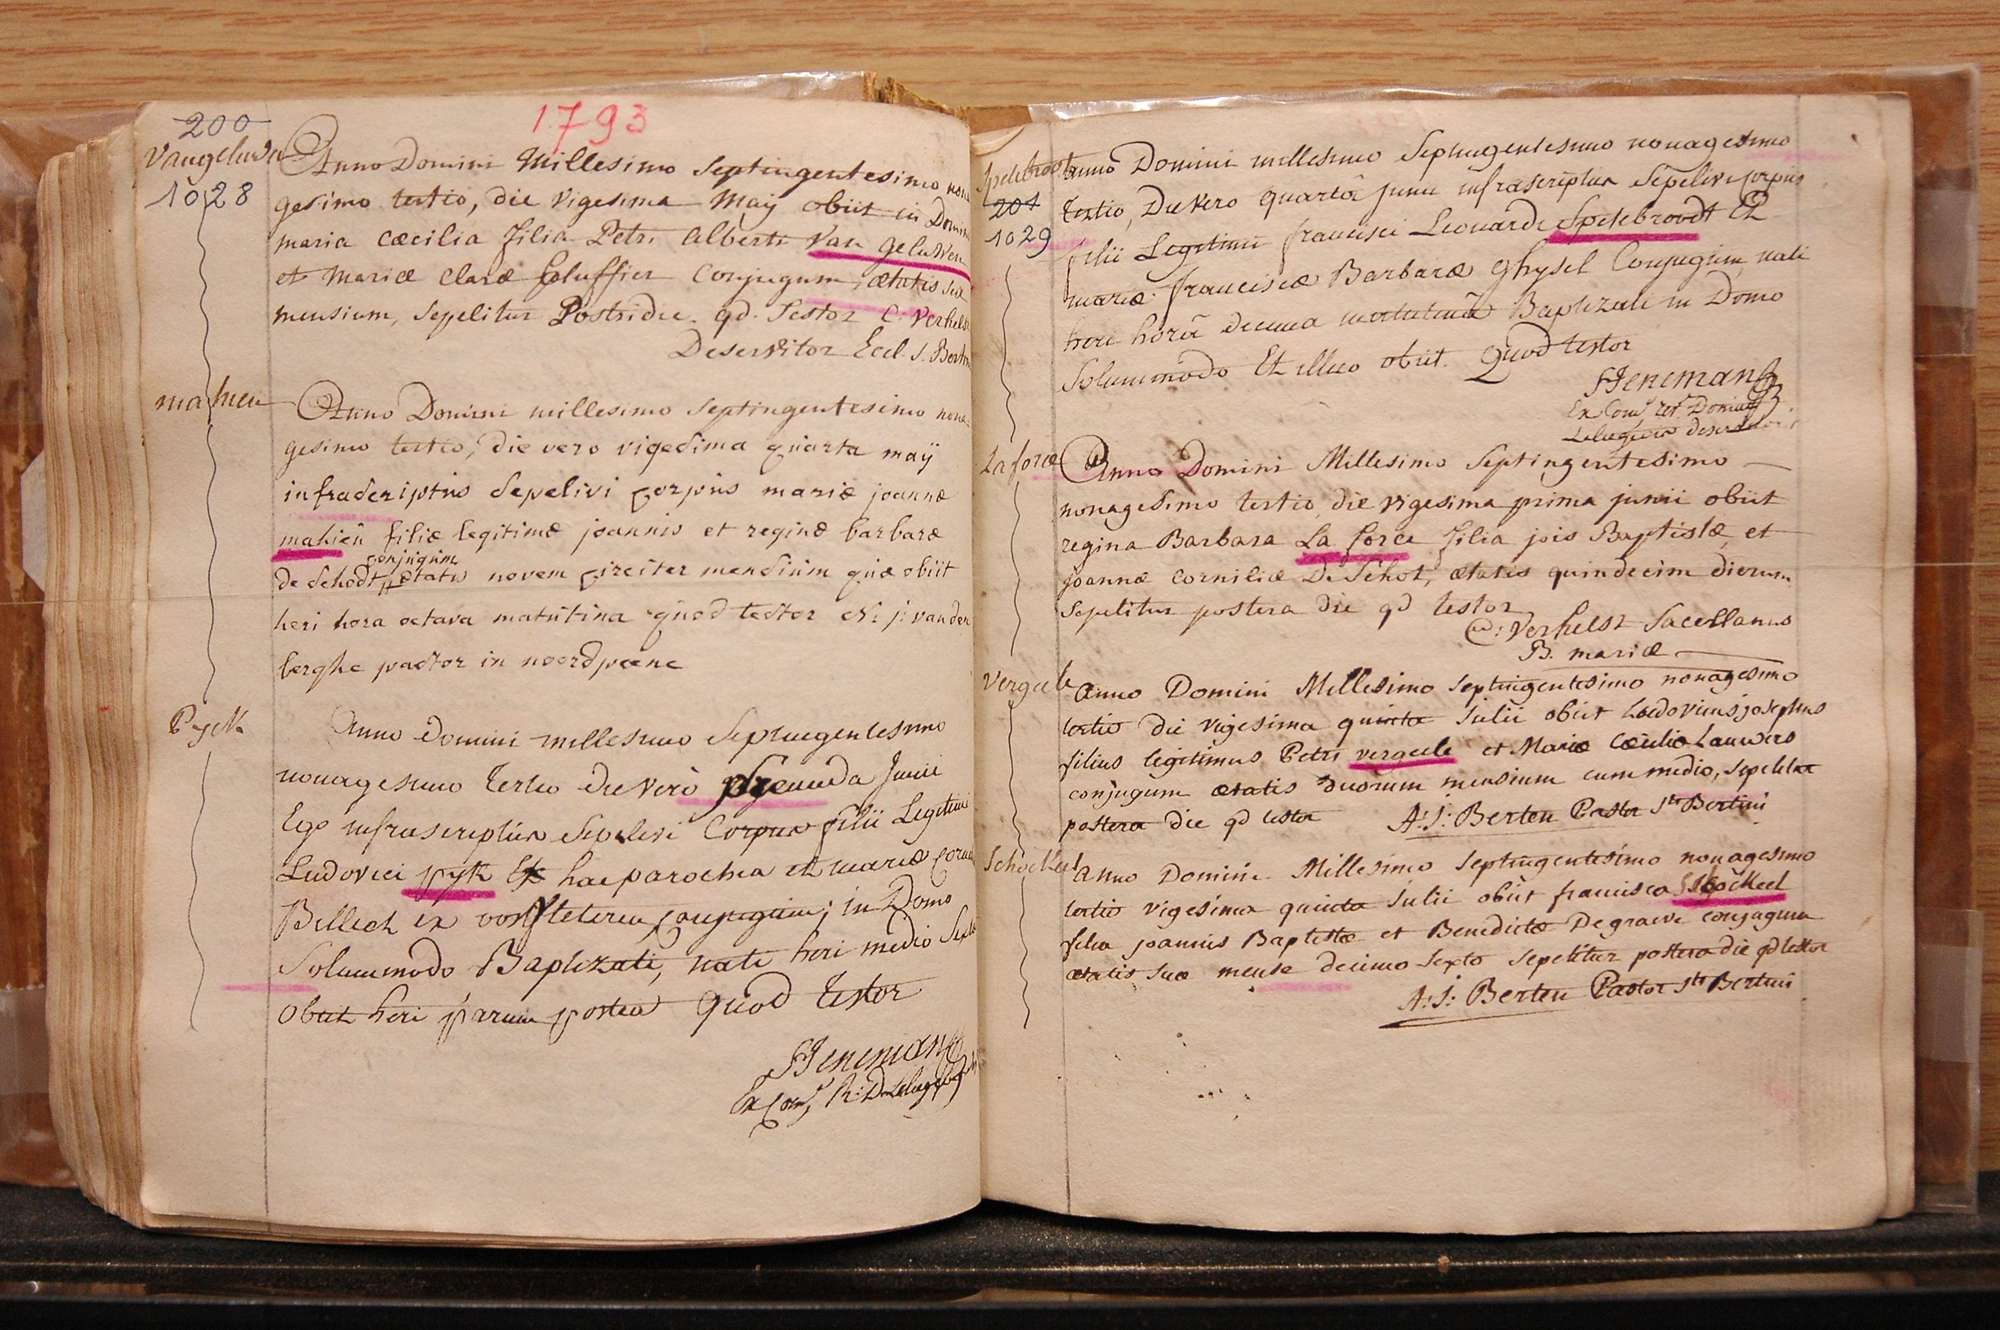 200
1793
Vangeluwen
1028
Anno Domini Millesimo Septingentesimo nona
gesimo tertio, die vigesima Maÿ obiit in Domino
maria Cæcilia filia Petri Alberti Van geluwen
et Mariæ Claræ Conjugum, ætatis sex
mensium, sepelitur Postridie. qd. Testor C: Verhelst
Deservitor Eccl. S. Bertin
mahieu
Anno Domini millesimo septingentesimo nona-
gesimo tertio, die vero vigesima quarta maÿ
infrascriptus sepelivi corpus mariæ joannæ
mahieu filiæ legitimæ joannis et reginæ barbaræ
conjugum
de Schodt ætatis novem circiter mensium quæ obiit
heri hora octava matutina quod testor j: vanden
berghe pastor in noordpeene
Pyck
Anno Domini millesimo septuagentesimo
nonagesimo Tertio die vero secunda Junii
Ego infrascriptus sepelivi Corpus filii Legitimi
Ludovici pyck Ex hac parochia et mariæ
Belleck ex vonsleteren conjugum; in Domo
Solummodo Baptizati, nati heri medio
obiit heri parum postea quod testor
Heneman
Ex Com. R: D.
Spelebroudt
201
1029
Anno Domini millesimo septuagentesimo nonagesimo
tertio, Die vero quarta junii infrascriptus sepelivi corpus
filii Legitimi francisci Leonardi Spelebroudt Et
mariæ franciscæ Barbaræ ghysel Conjugum, nati
heri hora decima matutina Baptizati in Domo
Solummodo Et illico obiit. Quod testor
Heneman
Ex Com. Domini
La force
Anno Domini Millesimo Septingentesimo
nonagesimo tertio, die vigesima prima junii obiit
regina Barbara La force filia jois Baptistæ et
joannæ corniliæ De Schot, ætatis quindecim dierum
sepelitur postera die qd testor
C: Verhelst Sacellanus
B. mariæ
Vergeele
Anno Domini Millesimo septingentesimo nonagesimo
tertio die vigesima quinta Julii obiit Ludovicus josephus
filius legitimus Petri vergeele et Mariæ Cæcilia Lauwers
conjugum ætatis duorum mensium cum medio, sepelitur
postera die qd testor A: J: Berten Pastor Sti Bertini
Schockeel
Anno Domini Millesimo septingentesimo nonagesimo
tertio vigesima quinta Julii obiit francisca Schockeel
filia joannis Baptistæ et Benedictæ De graeve conjugum
ætatis suæ mense decimo sexto sepelitur postera die qd testor
A: J: Berten Pastor Sti Bertini